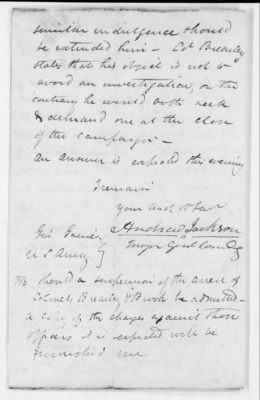 similar indulgence should
be extended him - Col Brearley
states that his object is not to
avoid an investigation, on the
contrary he would both seek
& demand one at the close
of the campaign -
an answer is expected this evening
I remain
Your
Andrew Jackson
Major Genl Comdg
Genl Gaines
U S Army
Should a suspension of the arrest of
Colonels Brearley & Brook be admitted -
a copy of the charges against those
officers it is expected will be
furnished me